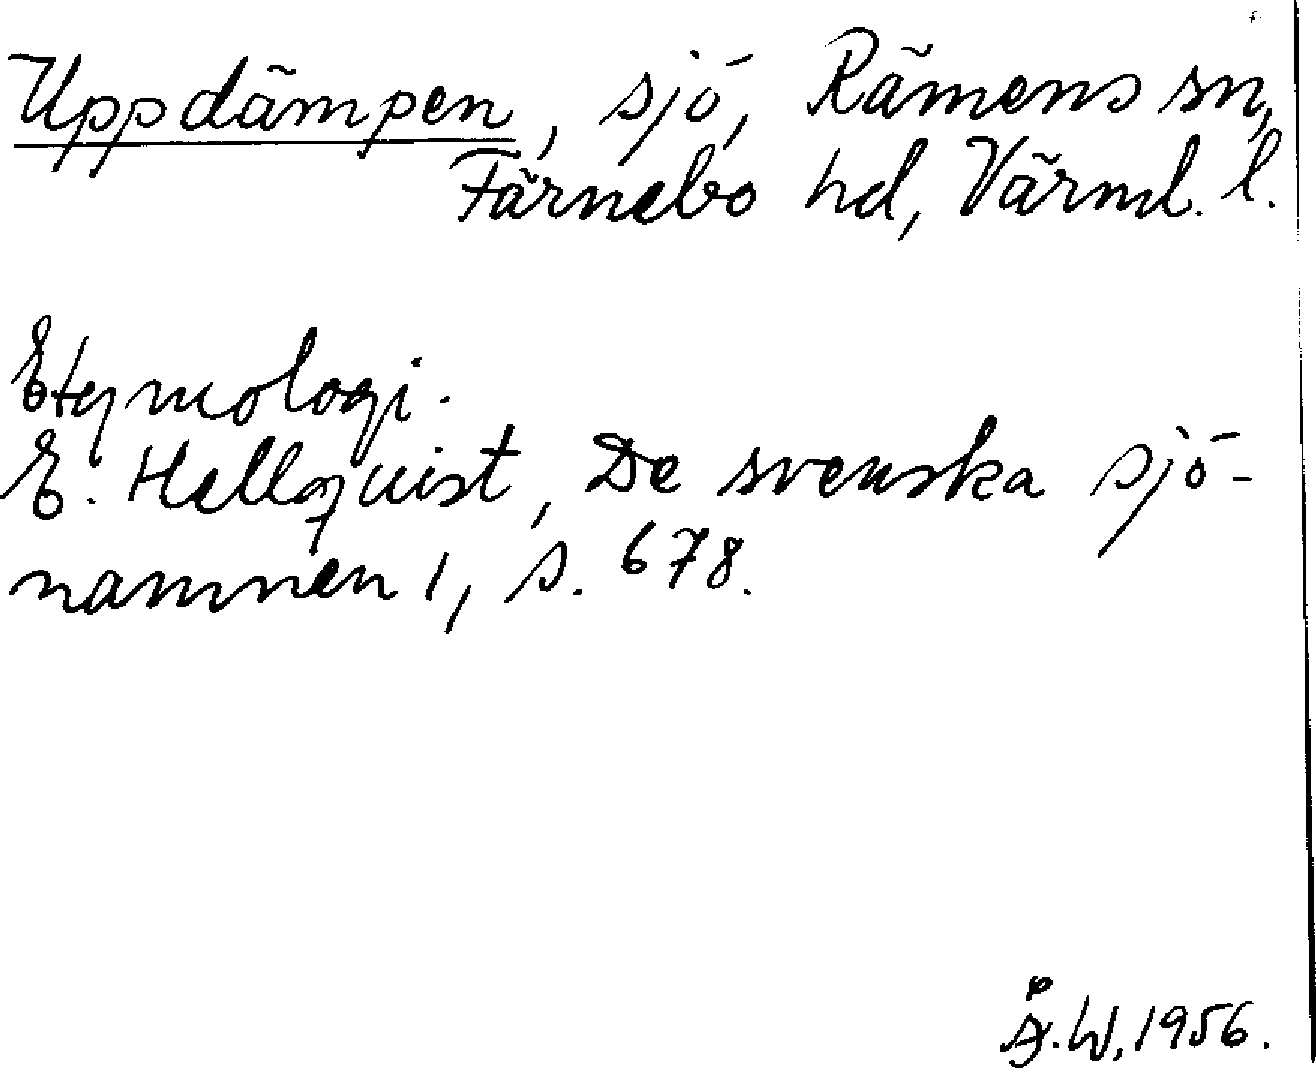 Uppdämpen, sjö, Rämens sn,
Färnebo hd, Värml. l.
Etymologi.
E. Hellquist, De svenska sjö-
namnen 1, s. 678.
Å.W. 1956.